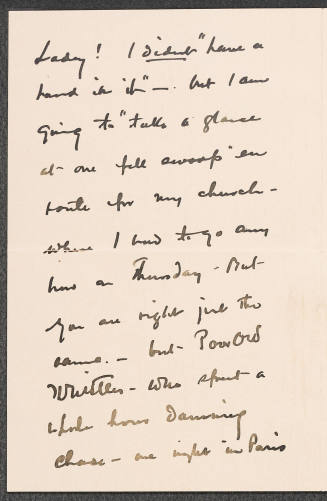 Lady! I didn't "have a
hand in it" — but I am
going to "take a glance
at one fell swoop" en
route for my church —
where I had to go any
how on Thursday - But
you are right just the
same. — but Poor Old
Whistler — who spent a
whole hour Damning
Chase — one night in Paris